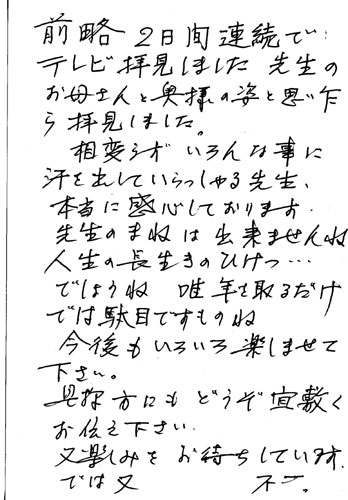 前略 2日間連続で
テレビ拝見しました 先生の
お母さんと奥様の姿と思い乍
ら拝見しました。
相変らず いろんな事に
汗を出していらっしゃる先生、
本当に感心しております.
先生のまねは出来ませんね
人生の長生きのひけつ…
でしょうね 唯年を取るだけ
では駄目ですものね
今後もいろいろ楽しませて
下さい。
方にも どうぞ宜敷く
お伝え下さい.
又楽しみをお待ちしています.
では又 不一。